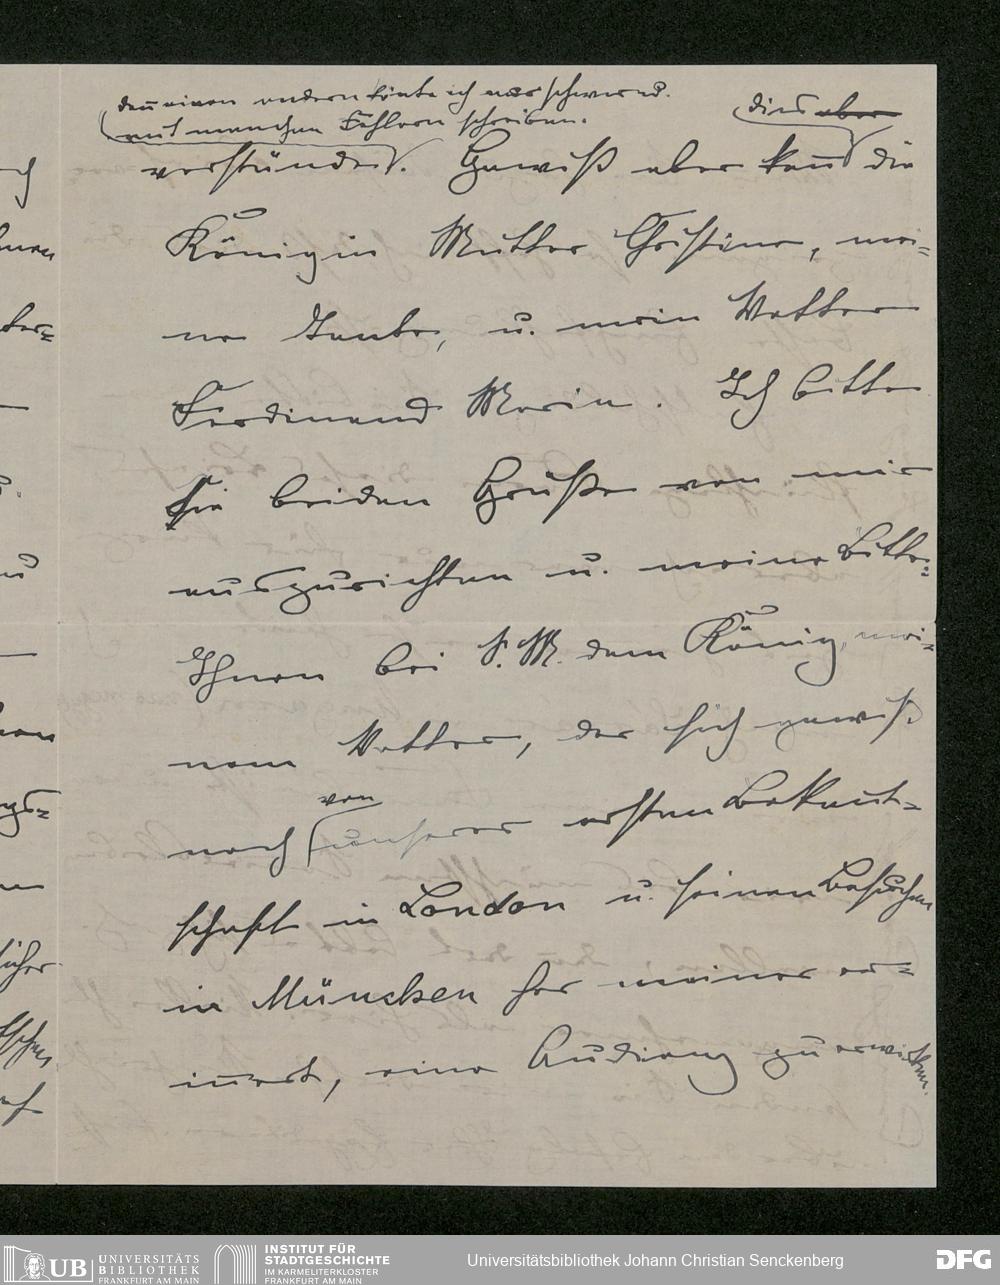 denn einen andern könte ich nur schwer u.
mit manchen Fehlern schreiben.
dies aber
verständen. Gewiß aber kann die
Königin Mutter Christine, mei-
ne Tante, u. mein Vetter
Ferdinand Maria. Ich bitte
Sie beiden Grüße von mir
auszurichten u. meine Bitte:
Ihnen bei S. M. dem König, mei-
nem Vetter, der sich gewiß
noch von unserer ersten Bekannt-
schaft in London u. seinen Besuchen
in München her meiner er-
innert, eine Audienz zu erwirken.
UB UNIVERSITÄTS
BIBLIOTHEK
FRANKFURT AM MAIN
INSTITUT FÜR
STADTGESCHICHTE
IM KARMELITERKLOSTER
FRANKFURT AM MAIN
Universitätsbibliothek Johann Christian Senckenberg
DFG